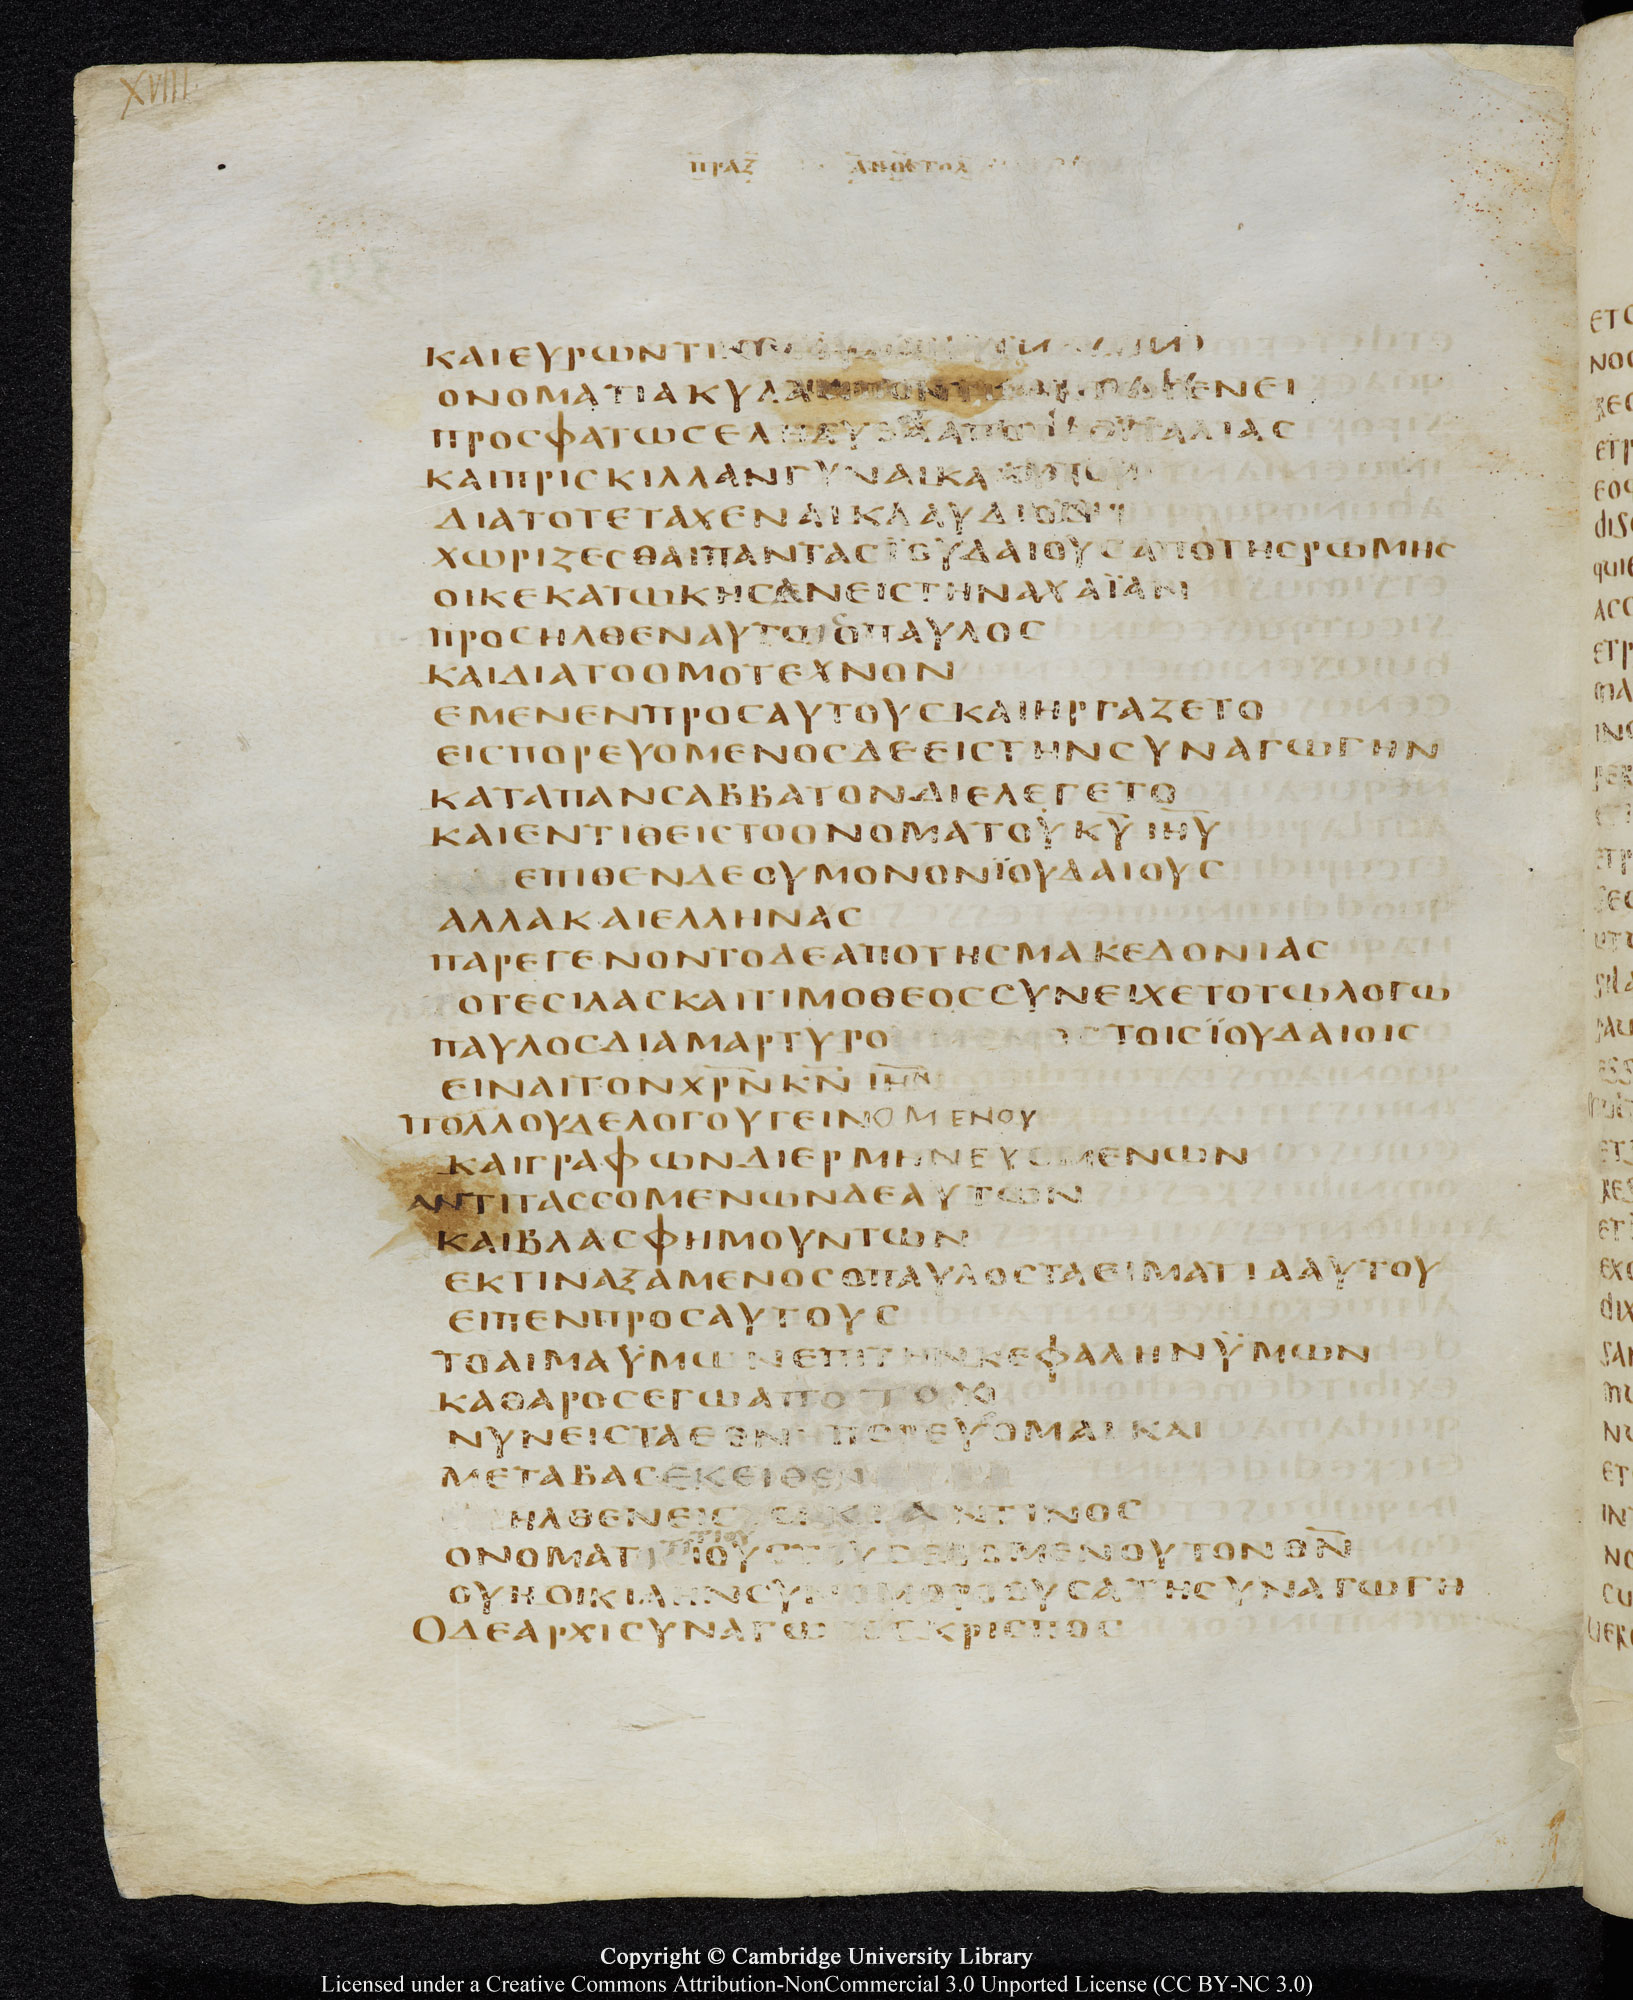 XVIII
ΠΡΑΞ ΑΠΟΣΤΟΛ
ΚΑΙΕΥΡΩΝΤΙΝΑ
ΟΝΟΜΑΤΙΑΚΥΛΑΝΠΟΝΤΙΚΟΝΤΩΓΕΝΕΙ
ΠΡΟΣΦΑΤΩΣΕΛΗΛΥΘΟΤΑΑΠΟΤΗΣΙΤΑΛΙΑΣ
ΚΑΙΠΡΙΣΚΙΛΛΑΝΓΥΝΑΙΚΑΑΥΤΟΥ
ΔΙΑΤΟΤΕΤΑΧΕΝΑΙΚΛΑΥΔΙΟΝ
ΧΩΡΙΖΕΣΘΑΙΠΑΝΤΑΣΪΟΥΔΑΙΟΥΣΑΠΟΤΗΣΡΩΜΗΣ
ΟΙΚΕΚΑΤΩΚΗΣΑΝΕΙΣΤΗΝΑΧΑΪΑΝ
ΠΡΟΣΗΛΘΕΝΑΥΤΩΟΠΑΥΛΟΣ
ΚΑΙΔΙΑΤΟΟΜΟΤΕΧΝΟΝ
ΕΜΕΝΕΝΠΡΟΣΑΥΤΟΥΣΚΑΙΗΡΓΑΖΕΤΟ
ΕΙΣΠΟΡΕΥΟΜΕΝΟΣΔΕΕΙΣΤΗΝΣΥΝΑΓΩΓΗΝ
ΚΑΤΑΠΑΝΣΑΒΒΑΤΟΝΔΙΕΛΕΓΕΤΟ
ΚΑΙΕΝΤΙΘΕΙΣΤΟΟΝΟΜΑΤΟΥΚ̅Υ̅ΙΗ̅Υ̅
ΕΠΙΘΕΝΔΕΟΥΜΟΝΟΝΪΟΥΔΑΙΟΥΣ
ΑΛΛΑΚΑΙΕΛΛΗΝΑΣ
ΠΑΡΕΓΕΝΟΝΤΟΔΕΑΠΟΤΗΣΜΑΚΕΔΟΝΙΑΣ
ΟΤΕΣΙΛΑΣΚΑΙΤΙΜΟΘΕΟΣΣΥΝΕΙΧΕΤΟΤΩΛΟΓΩ
ΠΑΥΛΟΣΔΙΑΜΑΡΤΥΡΟ ΜΟΣ ΤΟΙΣΪΟΥΔΑΙΟΙΣ
ΕΙΝΑΙΤΟΝΧΡ̅Ν̅Κ̅Ν̅ΙΗ̅Ν̅
ΠΟΛΛΟΥΔΕΛΟΓΟΥΓΕΙΝΟΜΕΝΟΥ
ΚΑΙΓΡΑΦΩΝΔΙΕΡΜΗΝΕΥΟΜΕΝΩΝ
ΑΝΤΙΤΑΣΣΟΜΕΝΩΝΔΕΑΥΤΩΝ
ΚΑΙΒΛΑΣΦΗΜΟΥΝΤΩΝ
ΕΚΤΙΝΑΞΑΜΕΝΟΣΟΠΑΥΛΟΣΤΑΕΙΜΑΤΙΑΑΥΤΟΥ
ΕΙΠΕΝΠΡΟΣΑΥΤΟΥΣ
ΤΟΑΙΜΑΫΜΩΝΕΠΙΤΗΝΚΕΦΑΛΗΝΫΜΩΝ
ΚΑΘΑΡΟΣΕΓΩΑΠΟΤΟΥ
ΝΥΝΕΙΣΤΑΕΘΝΗΠΟΡΕΥΟΜΑΙΚΑΙ
ΜΕΤΑΒΑΣΕΚΕΙΘΕΝ
ΗΛΘΕΝΕΙΣ ΟΙΚ ΑΝΤΙΝΟΣ
ΟΝΟΜΑΤΙ ΙΟΥΣΤΟΥΣΕΒΟΜΕΝΟΥΤΟΝΘ̅Ν̅
ΟΥΗΟΙΚΙΑΗΝΣΥΝΟΜΟΡΟΥΣΑΤΗΣΥΝΑΓΩΓΗ
ΟΔΕΑΡΧΙΣΥΝΑΓΩΓΟΣΚΡΙΣΠΟΣ
Copyright © Cambridge University Library
Licensed under a Creative Commons Attribution-NonCommercial 3.0 Unported License (CC BY-NC 3.0)